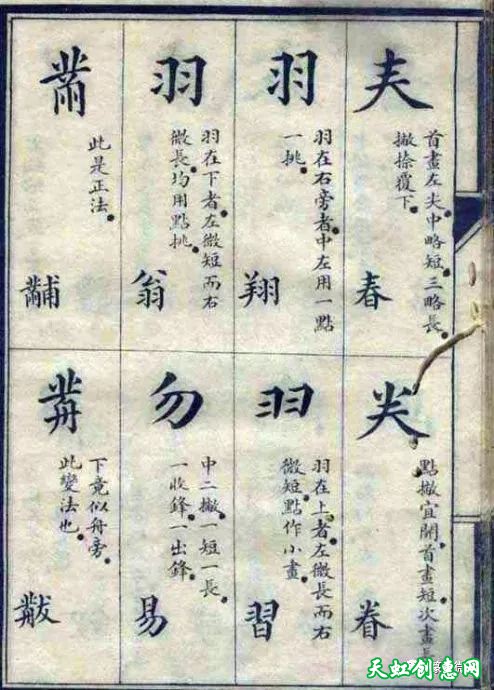 𡗗
首畫左尖中略短三略長
撇捺覆下
春
羽
羽在右旁者中左用一點
一挑
翔
羽
羽在下者左微短而右
微長均用點挑
翁
黹
此是正法
黼
龹
點撇宜開首畫短次畫長
眷
羽
羽在上者左微長而右
微短點作小畫
習
勿
中二撇一短一長
一收鋒一出鋒
易
黹
下竟似舟旁
此變法也
黻
天虹创意网